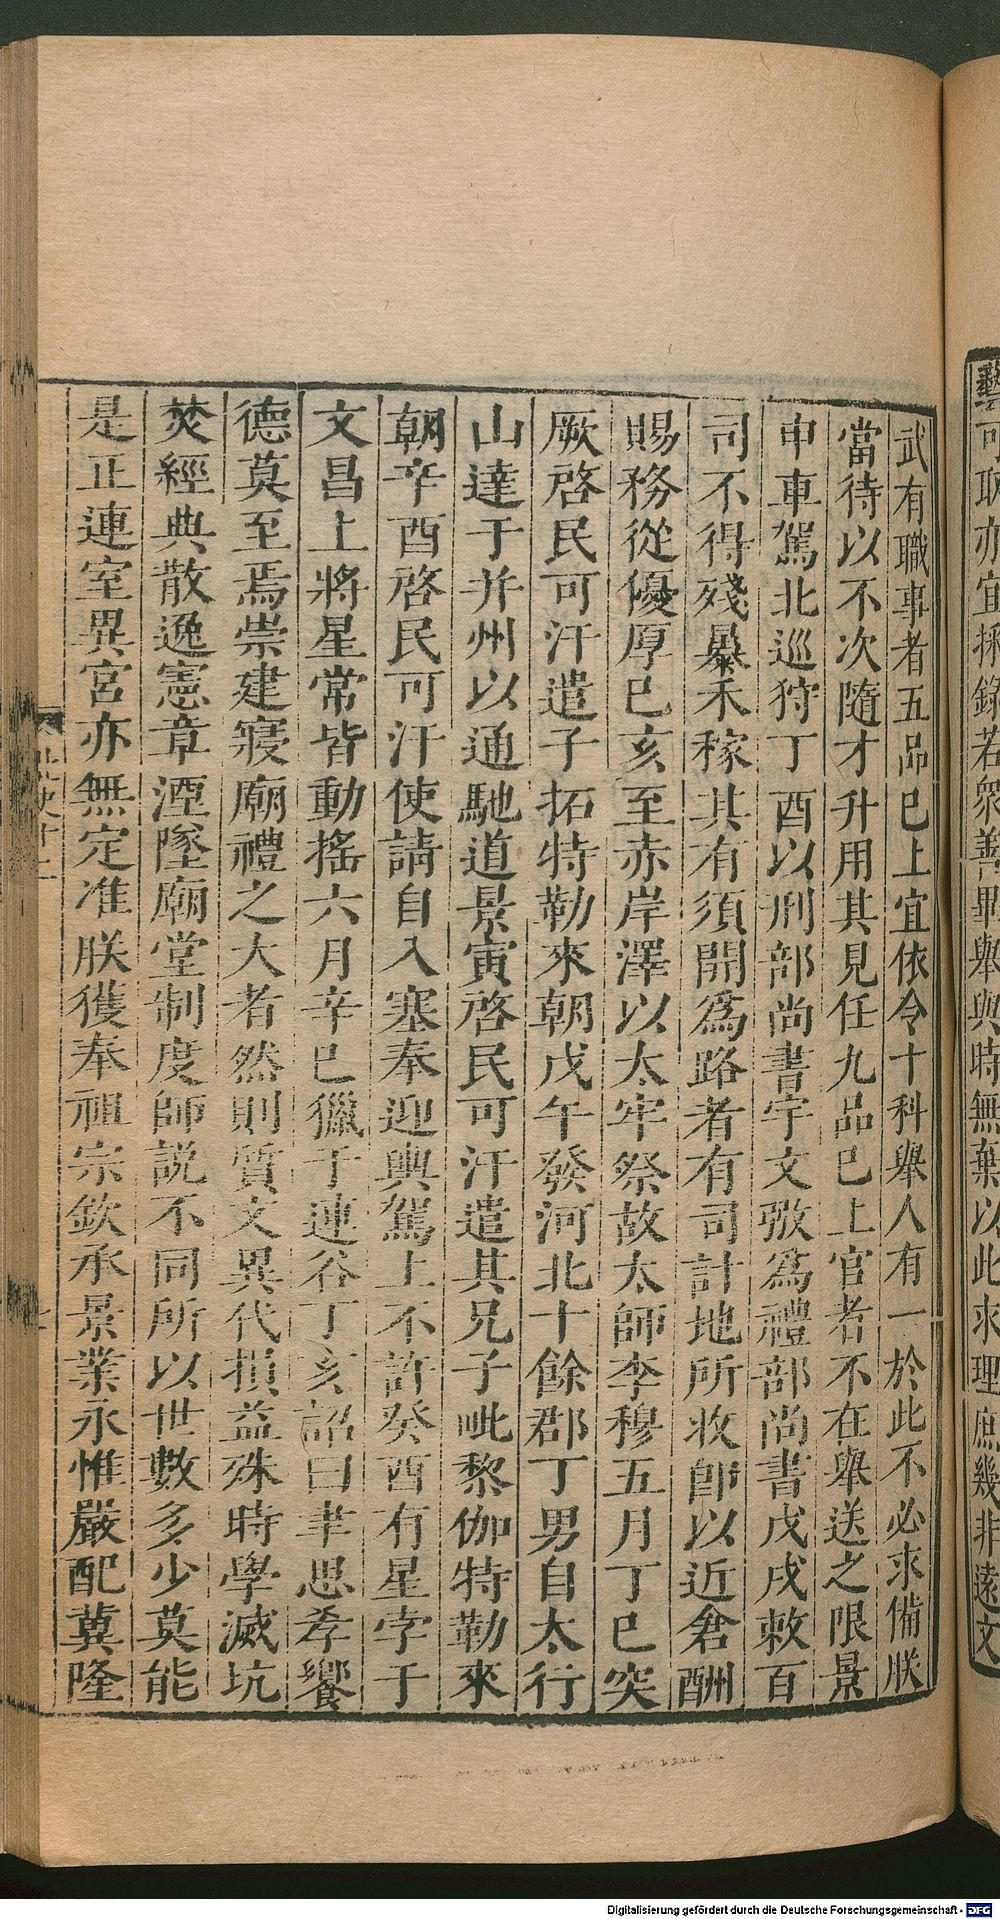 藝可取亦宜採錄若衆善畢舉與時無棄以此求理庶幾非遠文
武有職事者五品已上宜依令十科舉人有一於此不必求備朕
當待以不次隨才升用其見任九品已上官者不在舉送之限景
申車駕北巡狩丁酉以刑部尚書宇文㢸爲禮部尚書戊戌敕百
司不得殘暴禾稼其有須開爲路者有司計地所收卽以近倉酬
賜務從優厚已亥至赤岸澤以太牢祭故太師李穆五月丁巳突
厥啓民可汗遣子拓特勒來朝戊午發河北十餘郡丁男自太行
山達于并州以通馳道景寅啓民可汗遣其兄子毗黎伽特勒來
朝辛酉啓民可汗使請自入塞奉迎輿駕上不許癸酉有星孛于
文昌上將星常皆動搖六月辛巳獵于連谷丁亥詔曰聿思孝饗
德莫至焉崇建寢廟禮之大者然則質文異代損益殊時學滅坑
焚經典散逸憲章湮墜廟堂制度師說不同所以世數多少莫能
是正連室異宮亦無定准朕獲奉祖宗欽承景業永惟嚴配冀隆
Digitalisierung gefördert durch die Deutsche Forschungsgemeinschaft - DFG